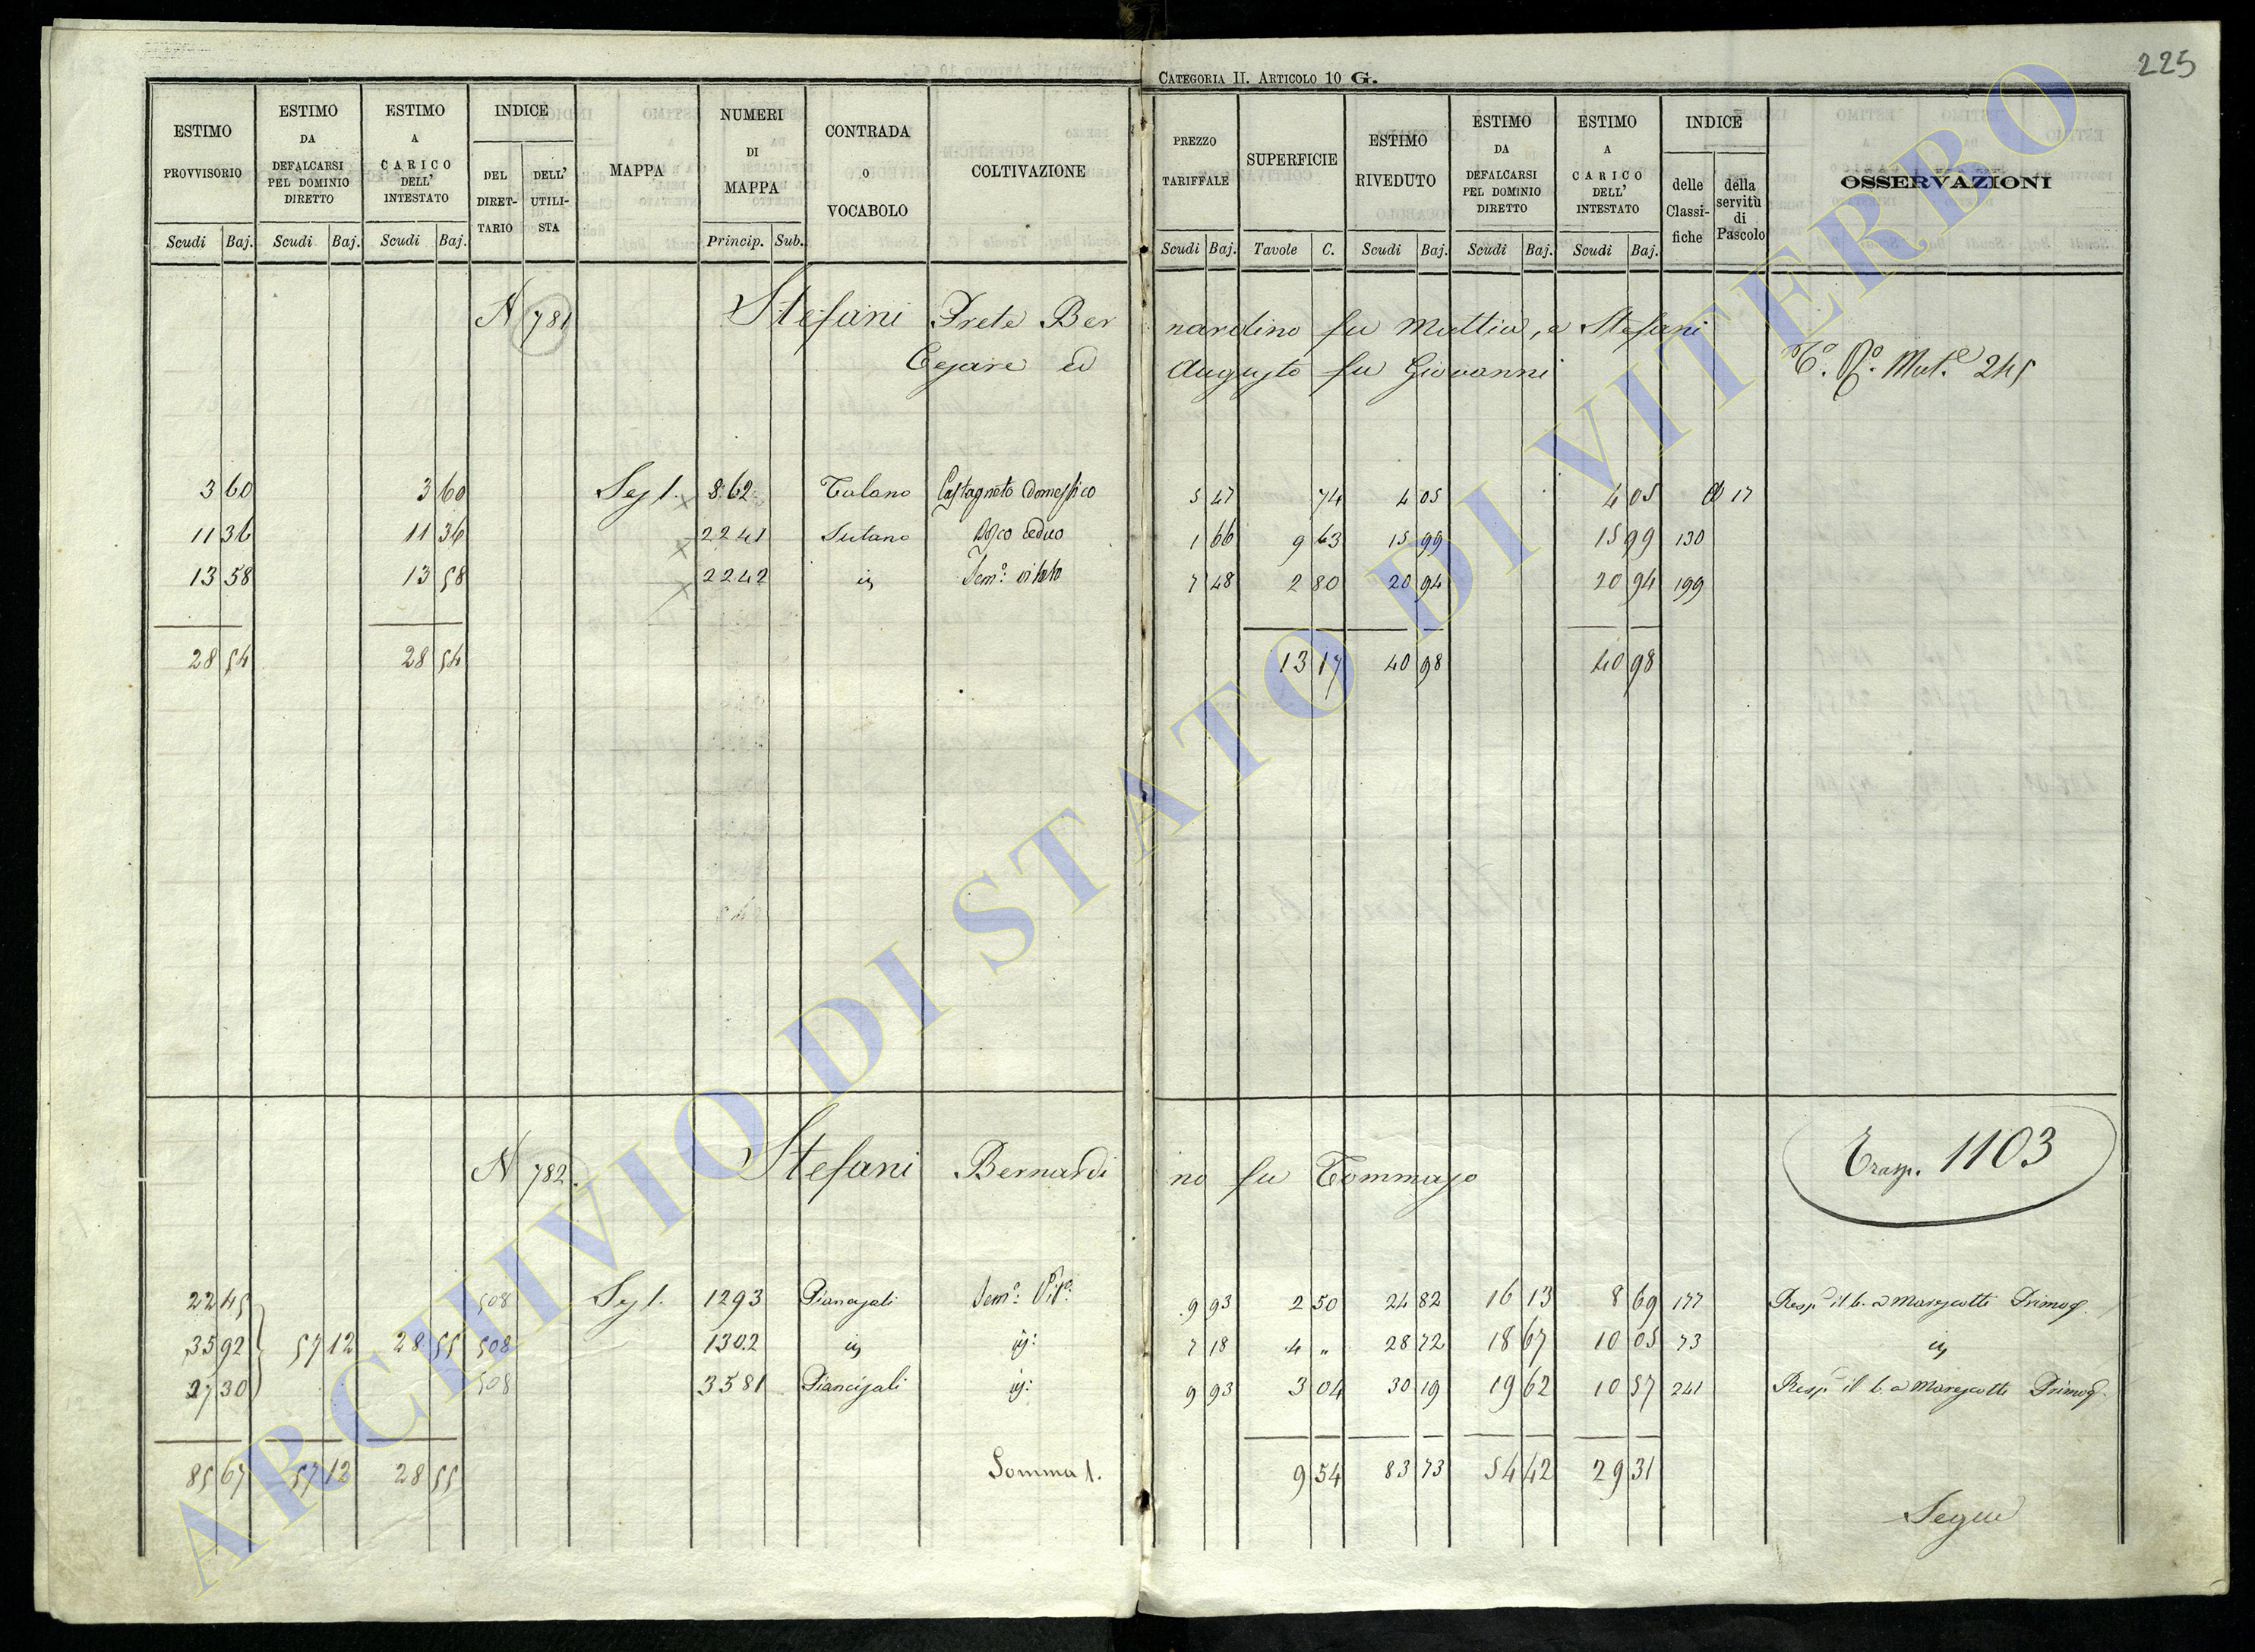 225
CATEGORIA II. ARTICOLO 10 G.
ESTIMO PROVVISORIO
ESTIMO DA DEFALCARSI PEL DOMINIO DIRETTO
ESTIMO A CARICO DELL' INTESTATO
INDICE
DEL DIRETTARIO
DELL' UTILISTA
MAPPA
NUMERI DI MAPPA
CONTRADA O VOCABOLO
COLTIVAZIONE
PREZZO TARIFFALE
SUPERFICIE
ESTIMO RIVEDUTO
ESTIMO DA DEFALCARSI PEL DOMINIO DIRETTO
ESTIMO A CARICO DELL' INTESTATO
INDICE
delle Classifiche
della servitù di Pascolo
OSSERVAZIONI
Scudi Baj. Scudi Baj. Scudi Baj. Princip. Sub. Scudi Baj. Tavole C. Scudi Baj. Scudi Baj. Scudi Baj.
N 781 Stefani Prete Bernardino fu Mattia, e Stefani
Cesare ed Augusto fu Giovanni
Mut.e 245
3 60 3 60 Sez 1. 862 Tulano Castagneto domestico 5 47 74 4 05 4 05 17
11 36 11 36 2241 Sutano Bosco ceduo 1 66 9 63 15 99 15 99 130
13 58 13 58 2242 id Sem.o vitato 7 48 2 80 20 94 20 94 199
28 54 28 54 13 17 40 98 40 98
N 782. Stefani Bernardino fu Tommaso
Trasp. 1103
22 45 508 Sez 1. 1293 Piancasali Sem.o Vit.o 9 93 2 50 24 82 16 13 8 69 177 Marescotti Primog.
35 92 57 12 28 55 508 1302 id id: 7 18 4 " 28 72 18 67 10 05 73 id
27 30 508 3581 Piancisali id: 9 93 3 04 30 19 19 62 10 57 241 Marescotti Primog.
85 67 57 12 28 55 Somma 1. 9 54 83 73 54 42 29 31
Segue
ARCHIVIO DI STATO DI VITERBO